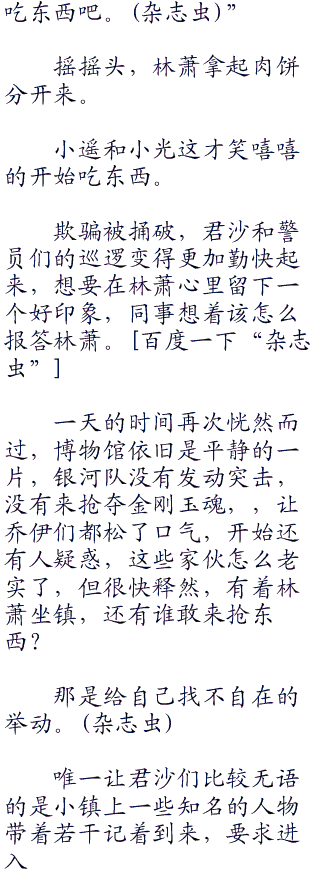 吃东西吧。(杂志虫)”
摇摇头，林萧拿起肉饼
分开来。
小遥和小光这才笑嘻嘻
的开始吃东西。
欺骗被捅破，君沙和警
员们的巡逻变得更加勤快起
来，想要在林萧心里留下一
个好印象，同事想着该怎么
报答林萧。[百度一下“杂志
虫”]
一天的时间再次恍然而
过，博物馆依旧是平静的一
片，银河队没有发动突击，
没有来抢夺金刚玉魂，，让
乔伊们都松了口气，开始还
有人疑惑，这些家伙怎么老
实了，但很快释然，有着林
萧坐镇，还有谁敢来抢东
西？
那是给自己找不自在的
举动。(杂志虫)
唯一让君沙们比较无语
的是小镇上一些知名的人物
带着若干记着到来，要求进
入